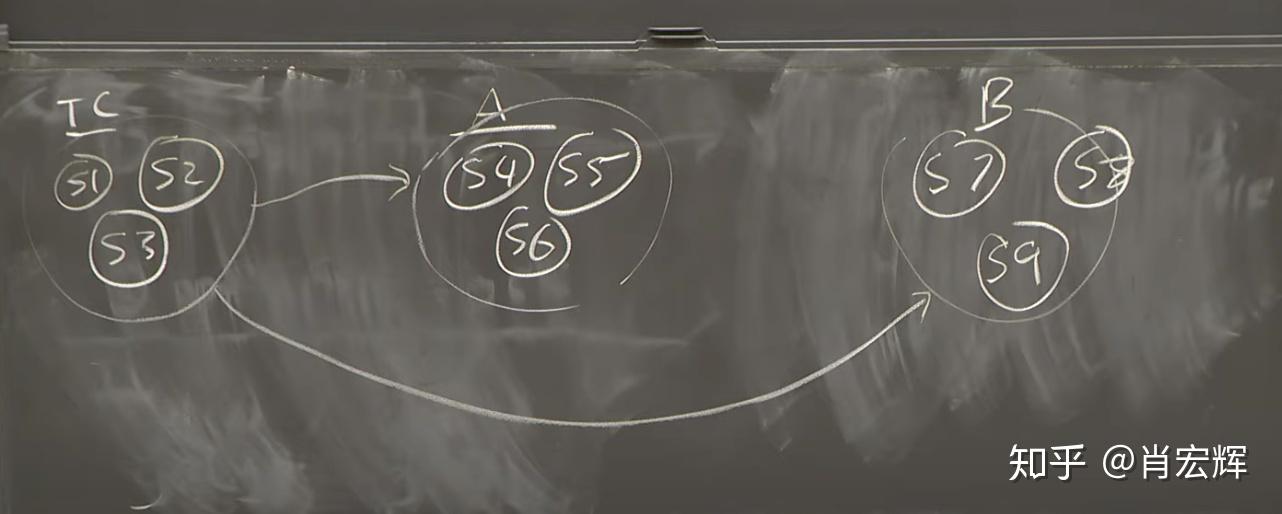 TC
A
B
S1 S2
S3
S4 S5
S6
S7 S8
S9
知乎 @肖宏辉